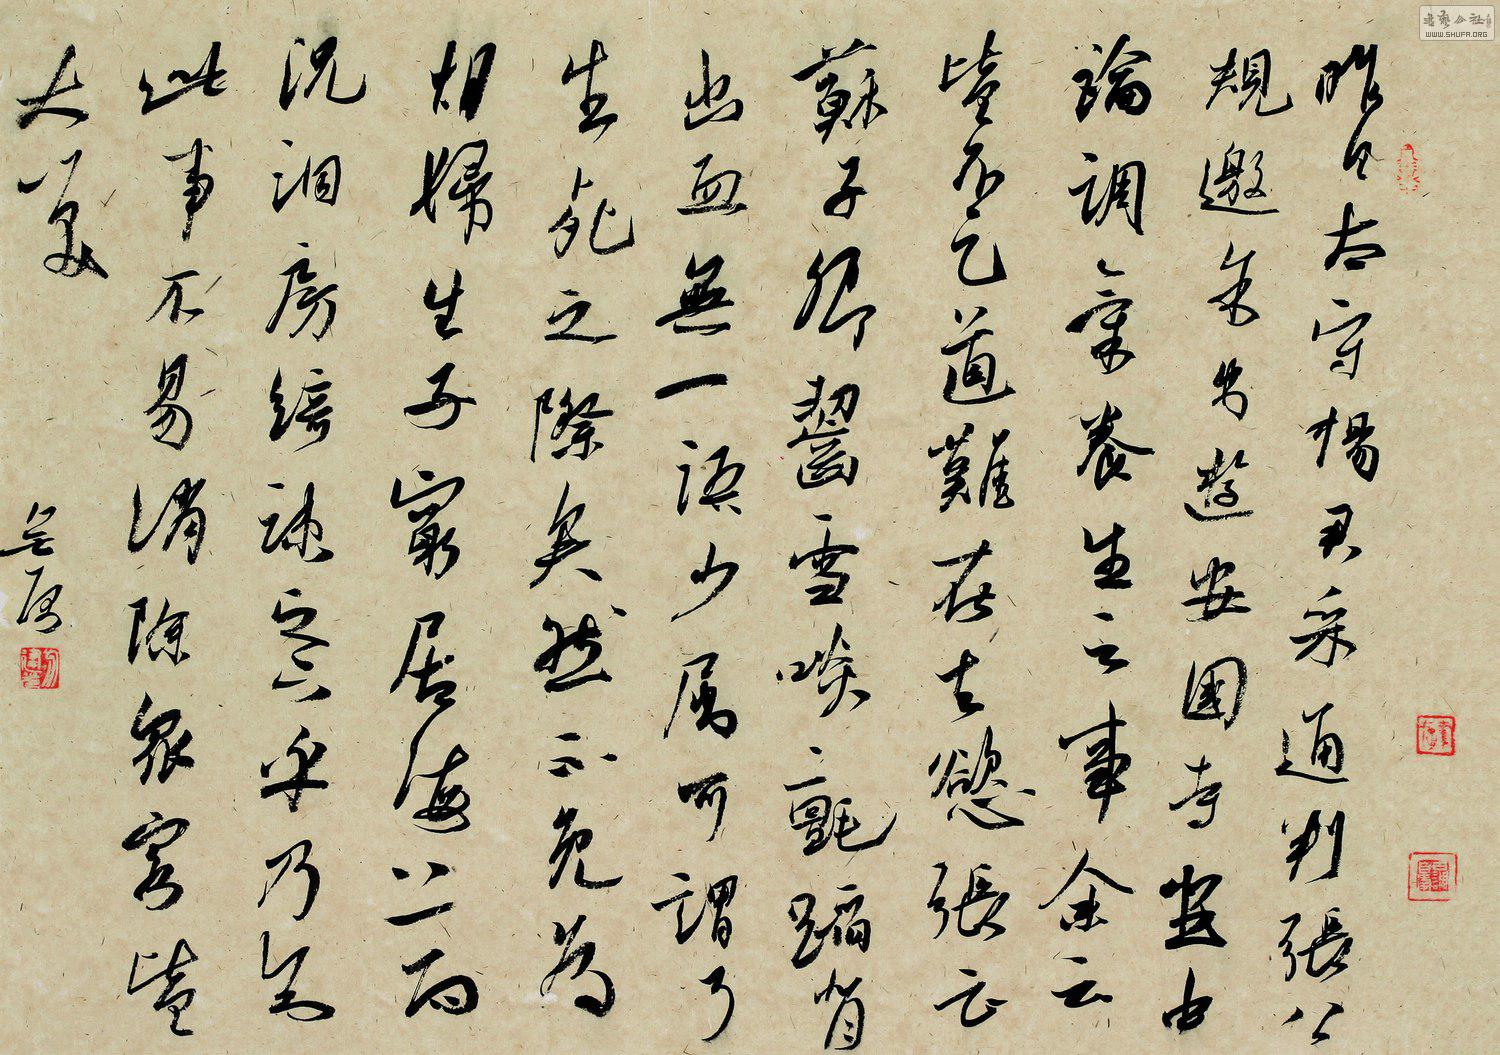 昨日太守楊君采通判張公
規邀余出遊安國寺坐中
論調氣養生之事余云
皆不足道難在去慾張云
蘇子卿齧雪啖氈蹈背
出血無一語少屈可謂了
生死之際矣然不免為
胡婦生子窮居海上而
況洞房綺疏之下乎乃知
此事不易消除眾客皆
大笑
WWW.SHUFA.ORG